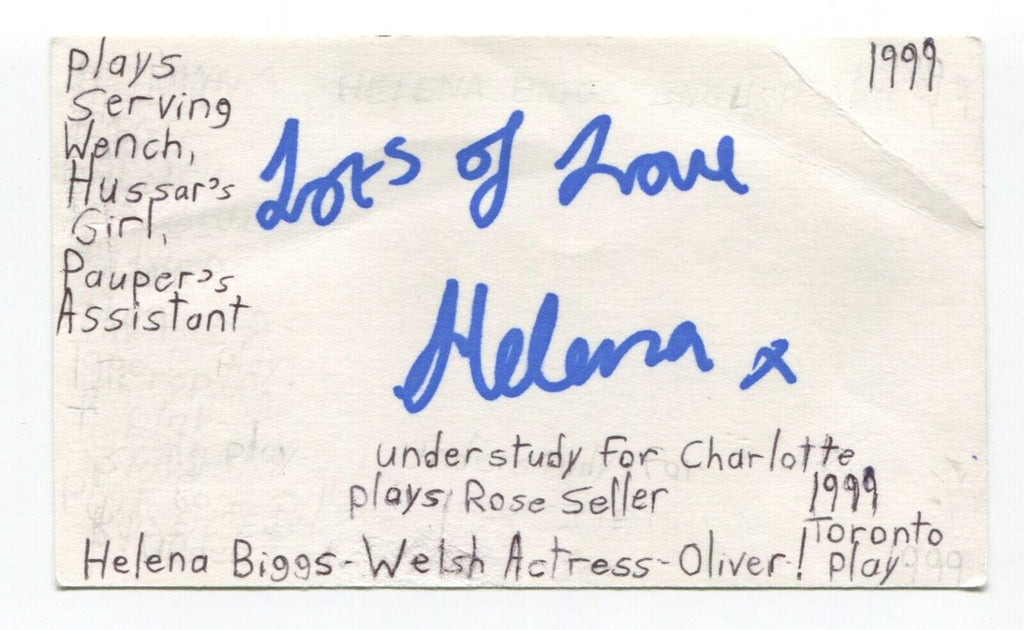 plays
Serving
Wench,
Hussar's
Girl,
Pauper's
Assistant
1999
Lots of Love
Helena x
understudy for Charlotte
plays Rose Seller
1999
Toronto
play
Helena Biggs - Welsh Actress - Oliver!